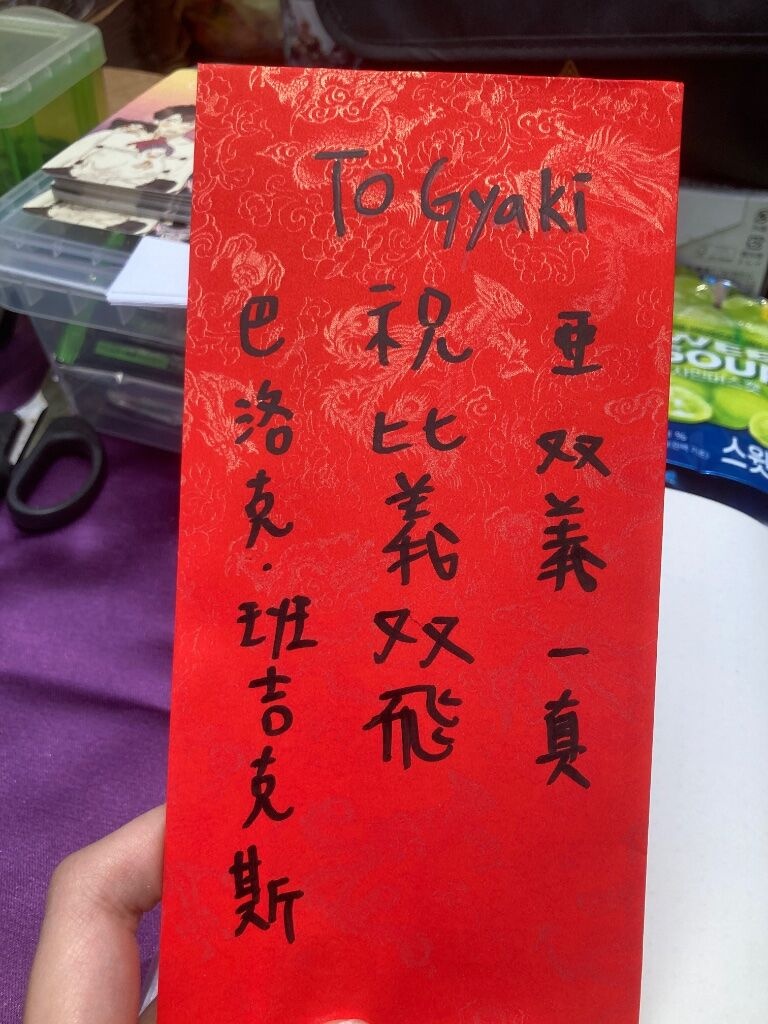 To Gyaki
亜双義一真
祝比義双飛
巴洛克·班吉克斯
SOUR
스윗